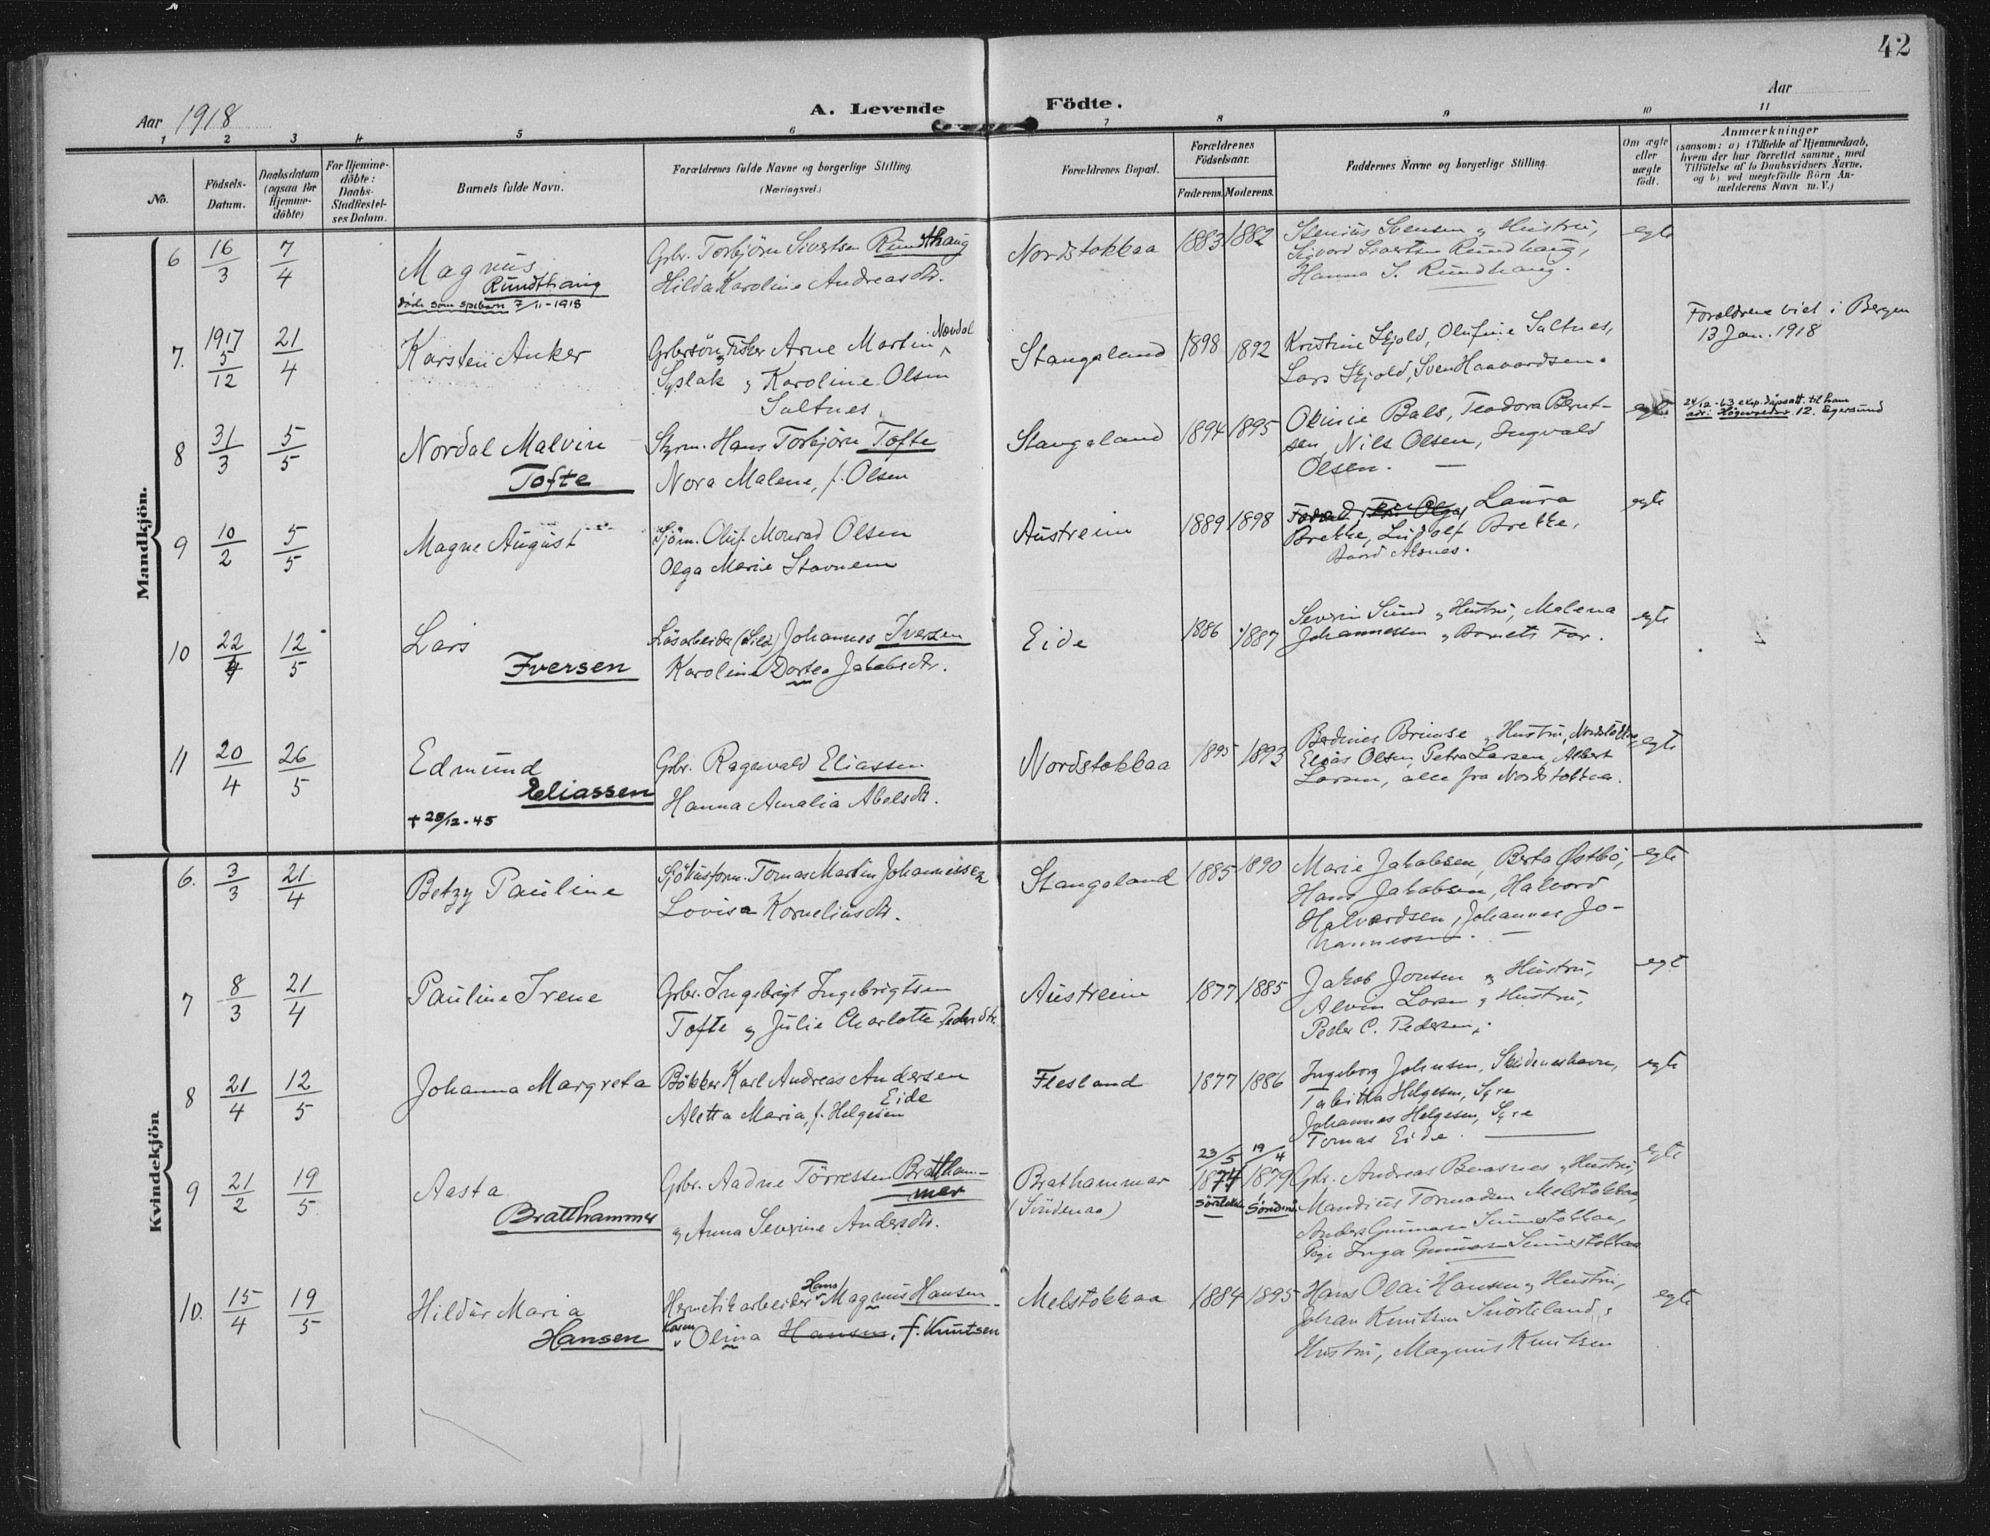 42
Aar 1918
A. Levende Födte.
Aar
1 2 3 4 5 6 7 8 9 10 11
No.
Födsels-
Datum.
Daabsdatum
(ogsaa for
Hjemme-
döbte)
For Hjemme-
döbte:
Daabs-
Stadfæstel-
ses Datum.
Barnets fulde Navn.
Forældrenes fulde Navne og borgerlige Stilling.
(Næringsvei.)
Forældrenes Bopæl.
Forældrenes
Födselsaar.
Faderens. Moderens.
Faddernes Navne og borgerlige Stilling.
Om ægte
eller
uægte
födt.
Anmærkninger
(saasom: a) i Tilfælde af Hjemmedaab,
hvem der har forrettet samme, med
Tilföielse af to Daabsvidners Navne,
og b) ved uægtefödte Börn An-
melderens Navn m. V.)
Mandkjön.
6 16/3 7/4
Magnus
Rundthaug
døde som spebarn 7/11-1918
Gbr. Torbjørn Sivertsen Rundthaug
Hilda Karoline Andreasdtr.
Nordstokkaa 1883 1882
Stenius Svensen og Hustru,
Sivert Rundhaug,
Hanna S. Rundhaug.
egte
7. 1917 5/12 21/4
Karsten Anker
Grbrsön, Fisker Arne Martin Nordal
Syslak og Karoline Olsen
Saltnes
Stangaland 1898 1892
Kristine Skjold, Olufine Saltnes,
Lars Skjold, Sven Haavardsen.
Forældrene viet i Bergen
13 Jan. 1918
8 31/3 5/5
Nordal Malvin
Tofte
Styrm. Hans Torbjørn Tofte
Nora Malene, f. Olsen
Stangaland 1894 1895
Bals, Teodora Bernt-
sen, Nils Olsen, Ingvald
Olsen.
egte
24/12-63 eksp. dåpsatt. til ham
adr: 12. Egersund
9 10/2 5/5
Magne August
Sjöm. Oluf Monrad Olsen
Olga Marie Stavnem
Austreim 1889 1898
Laura
Brekke, Ludolf Brekke,
Baard Alsnes.
egte
10 22/4 12/5
Lars
Iversen
Lösarbeider (Sild) Johannes Iversen
Karoline Dortea Jakobsdtr.
Eide 1886 1887
Severin Sund og Hustru, Malena
Johannessen og Barnets Far.
egte
11 20/4 26/5
Edmund
Eliassen
+ 28/12-45
Gbr. Ragnvald Eliassen
Hanna Amalia Abelsdtr.
Nordstokkaa 1895 1893
Berdines Brimse og Hustru, Nordstokkaa,
Elias Olsen, Petra Larsen, Albert
Larsen, alle fra Nordstokkaa.
egte
Kvindekjön
6. 3/3 21/4
Betzy Pauline
Tomas Martin Johannessen
Lovisa Korneliusdtr.
Stangaland 1885 1890
Marie Jakobsen, Berta Østbö,
Hans Jakobsen, Halvord
Halvordsen, Johannes Jo-
hannessen.
egte
7 8/3 21/4
Pauline Irene
Grbr. Ingebrigt Ingebrigtsen
Tofte og Julie Charlotte Pedersdtr.
Austreim 1877 1885
Jakob Jonsen og Hustru,
Alvin Larsen og Hustru,
Peder C. Pedersen.
egte
8 21/4 12/5
Johanna Margreta
Bökker Karl Andreas Andersen
Eide
Aletta Maria, f. Helgesen
Flesland 1877 1886
Ingeborg Johnsen, Skudeneshavn,
Tabitha Helgesen, Syre
Johannes Helgesen, Syre
Tomas Eide.
egte
9 21/2 19/5
Aasta
Bratthammer
Gbr. Aadne Törressen Bratham-
mer
og Anna Severine Andersdtr.
Brathammer
(Skudenes)
23/5 19/4
1874 1879
Gbr. Andreas og Hustru,
Mandius Tormodsen Melstokkaa,
Anders Gunnarsen Sunnestokkaa,
Pige Inga Gunnarsen Sunnestokkaa
egte
10. 15/4 19/5
Hildur Maria
Hansen
Hermetikarbeider Hans Magnus Hansen
Karen Olina Hansen, f. Knutsen
Melstokkaa 1884 1895
Hans Olai Hansen og Hustru,
Johan Knutsen Snörteland og
Hustru, Magnus Knutsen
egte